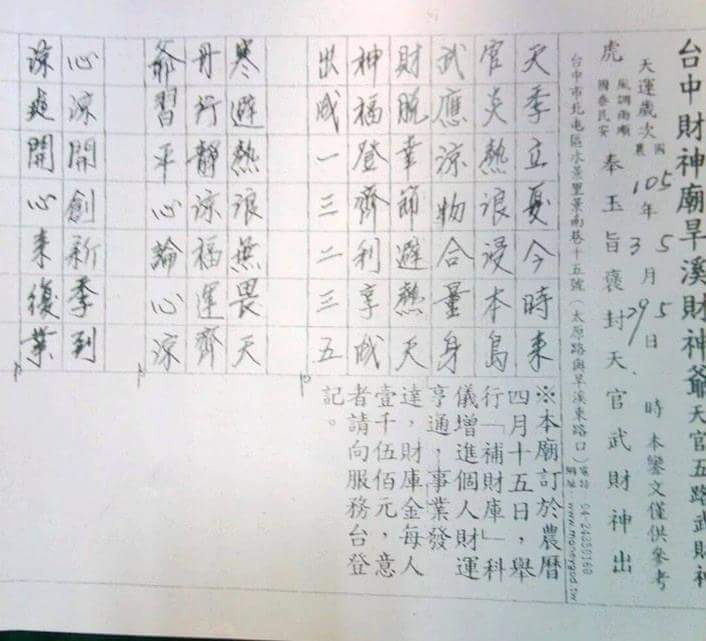 台中財神廟旱溪財神爺天官五路武財神
天運歲次 國 105年5月5日 時 本鑾文僅供參考
農 3 29
虎 風調雨順 奉玉旨褒封天官武財神出
國泰民安
台中市北屯區水景里景南巷十五號(太原路與旱溪東路口)電話:
網址:www.moneygod.tw
天季立夏今時來
官炎熱浪浸本島
武應涼物合量身
財脫幸節避熱天
神福登齊利享成
出成一三二三五
※本廟訂於農曆
四月十五日,舉
行「補財庫」科
儀增進個人財運
亨通,事業發
達,財庫金每人
壹千伍佰元,意
者請向服務台登
記。
寒避熱浪無畏天
丹行靜涼福運齊
爺習平心論心涼
心涼開創新季到
涼爽開心來復業